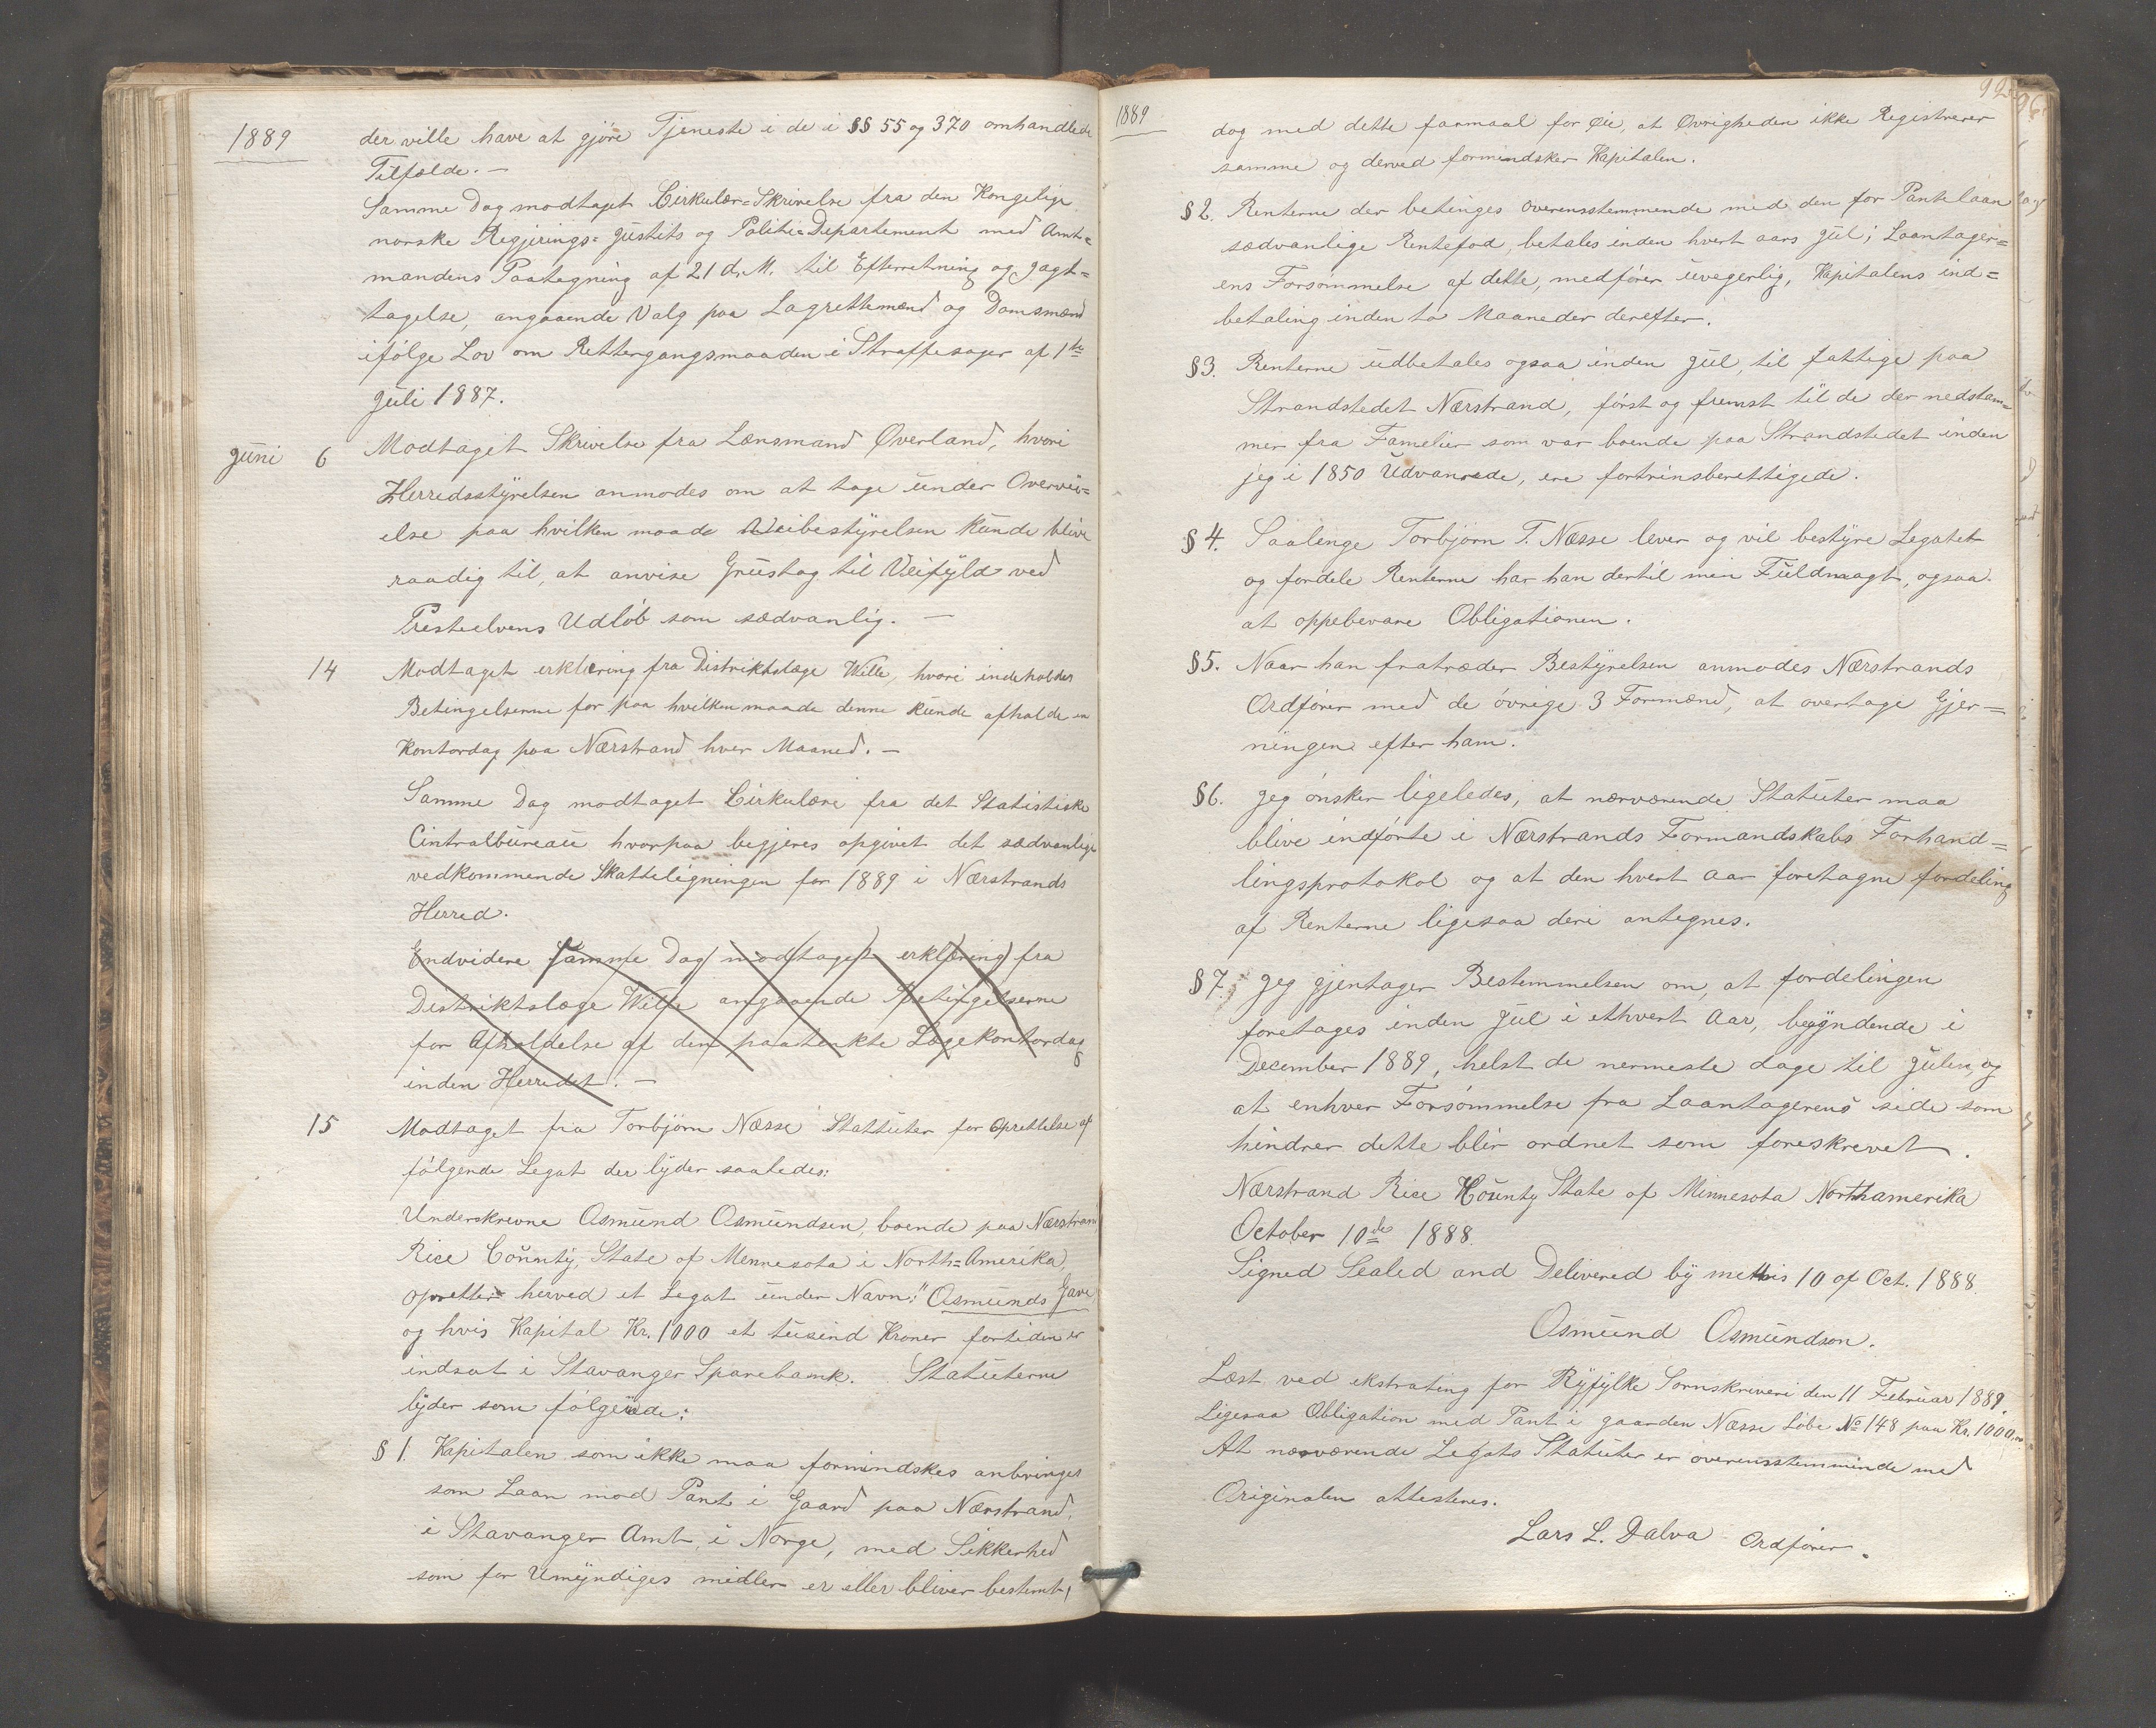 1889
der ville have at gjöre Tjeneste i de i §§ 55 og 370 omhandlede
Tilfælde. —
Samme Dag modtaget Cirkulær=Skrivelse fra den Kongelige
norske Regjerings= Justits og Politi=Departement med Amt=
mandens Paategning af 21 d. M. til Efterretning og Jagt=
tagelse, angaaende Valg paa Lagrettemænd og Domsmænd
ifölge Lov om Rettergangsmaaden i Straffesager af 1ste
Juli 1887.
Juni 6 Modtaget Skrivelse fra Lænsmand Øverland, hvori
Herredsstyrelsen anmodes om at tage under Overvei=
else paa hvilken maade Veibestyrelsen kunde blive
raadig til, at anvise Grustag til Veifyld ved
Presteelvens Udlöb som sædvanlig. —
14 Modtaget erklæring fra Distriktslæge Wille, hvori indeholder
Betingelserne for paa hvilken maade denne kunde afholde en
Kontordag paa Nærstrand hver Maaned. —
Samme Dag modtaget Cirkulære fra det Statistiske
Cintralbureau hvorpaa begjeres opgivet det sædvanlige
vedkommende Skatteligningen for 1889 i Nærstrands
Herred.
Endvidere samme Dag modtaget erklæring fra
Distriktslæge Wille angaaende Betingelserne
for Afholdelse af den paatænkte Lægekontordag
inden Herredet. —
15 Modtaget fra Torbjörn Næsse Stattuter for Oprettelse af
fölgende Legat der lyder saaledes:
Underskrevne Osmund Osmundsen, boende paa Nærstrand
Rice County, State of Mennesota i North=Amerika,
opretter herved et Legat under Navn: "Osmunds Gave,
og hvis Kapital Kr. 1000 et tusind Kroner fortiden er
indsat i Stavanger Sparebank. Statuterne
lyder som fölgende:
§ 1. Kapitalen som ikke maa formindskes anbringes
som Laan mod Pant i Gaard paa Nærstrand,
i Stavanger Amt, i Norge, med Sikkerhed
som for Umyndiges midler er eller bliver bestemt,
1889
92
96
dog med dette formaal for Øie, at Øvrigheden ikke Registrerer
samme og derved formindsker Kapitalen.
§ 2. Renterne der betinges overensstemmende med den for Pantelaan
sædvanlige Rentefod, betales inden hvert aars Jul; Laantager=
ens Forsömmelse af dette, medförer uvegerlig, Kapitalens ind=
betaling inden to Maaneder derefter.
§ 3. Renterne udbetales ogsaa inden Jul, til fattige paa
Strandstedet Nærstrand, först og fremst til de der nedstam=
mer fra Familier som var boende paa Strandstedet inden
jeg i 1850 Udvanrede, ere fortrinsberettigede.
§ 4. Saalenge Torbjörn T. Næsse lever og vil bestyre Legatet
og fordele Renterne har han dertil min Fuldmagt, ogsaa
at oppebevare Obligationen.
§ 5. Naar han fratræder Bestyrelsen anmodes Nærstrands
Ordförer med de övrige 3 Formænd, at overtage Gjer=
ningen efter ham.
§ 6. Jeg önsker ligeledes, at nærværende Statuter maa
blive indförte i Nærstrands Formandskabs Forhand=
lingsprotokol og at den hvert Aar foretagne fordeling
af Renterne ligesaa deri antegnes.
§ 7. Jeg gjentager Bestemmelsen om, at fordelingen
foretages inden Jul i ethvert Aar, begyndende i
December 1889, helst de nermeste dage til Julen, og
at enhver Forsömmelse fra Laantagerens side som
hindrer dette blir ordnet som foreskrevet.
Nærstrand Rice County State of Minnesota Northamerika
October 10de 1888.
Signed Sealed and Delivered by me this 10 of Oct. 1888.
Osmund Osmundson.
Læst ved ekstrating for Ryfylke Sornskriveri den 11 Februar 1889.
Ligesaa Obligation med Pant i gaarden Næsse Löbe No 148 paa Kr. 1000,00
At nærværende Legats Statuter er overensstemmende med
Originalen attesteres.
Lars L. Dalva Ordförer.